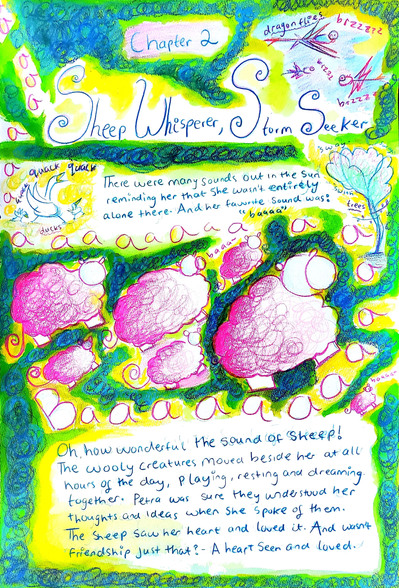 Chapter 2
dragonflies
bzzzzz
bzzz
bzzzzz
Sheep Whisperer, Storm Seeker
quack quack
ducks
There were many sounds out in the sun
reminding her that she wasn't entirely
alone there. And her favorite sound was:
"baaaa"
sway
swish
trees
a a a a a a a a a
baaaa
baaaa
Baaaaaaaaa
Oh, how wonderful the sound of sheep!
The wooly creatures moved beside her at all
hours of the day, playing, resting and dreaming
together. Petra was sure they understood her
thoughts and ideas when she spoke of them.
The sheep saw her heart and loved it. And wasn't
friendship just that? - A heart seen and loved.